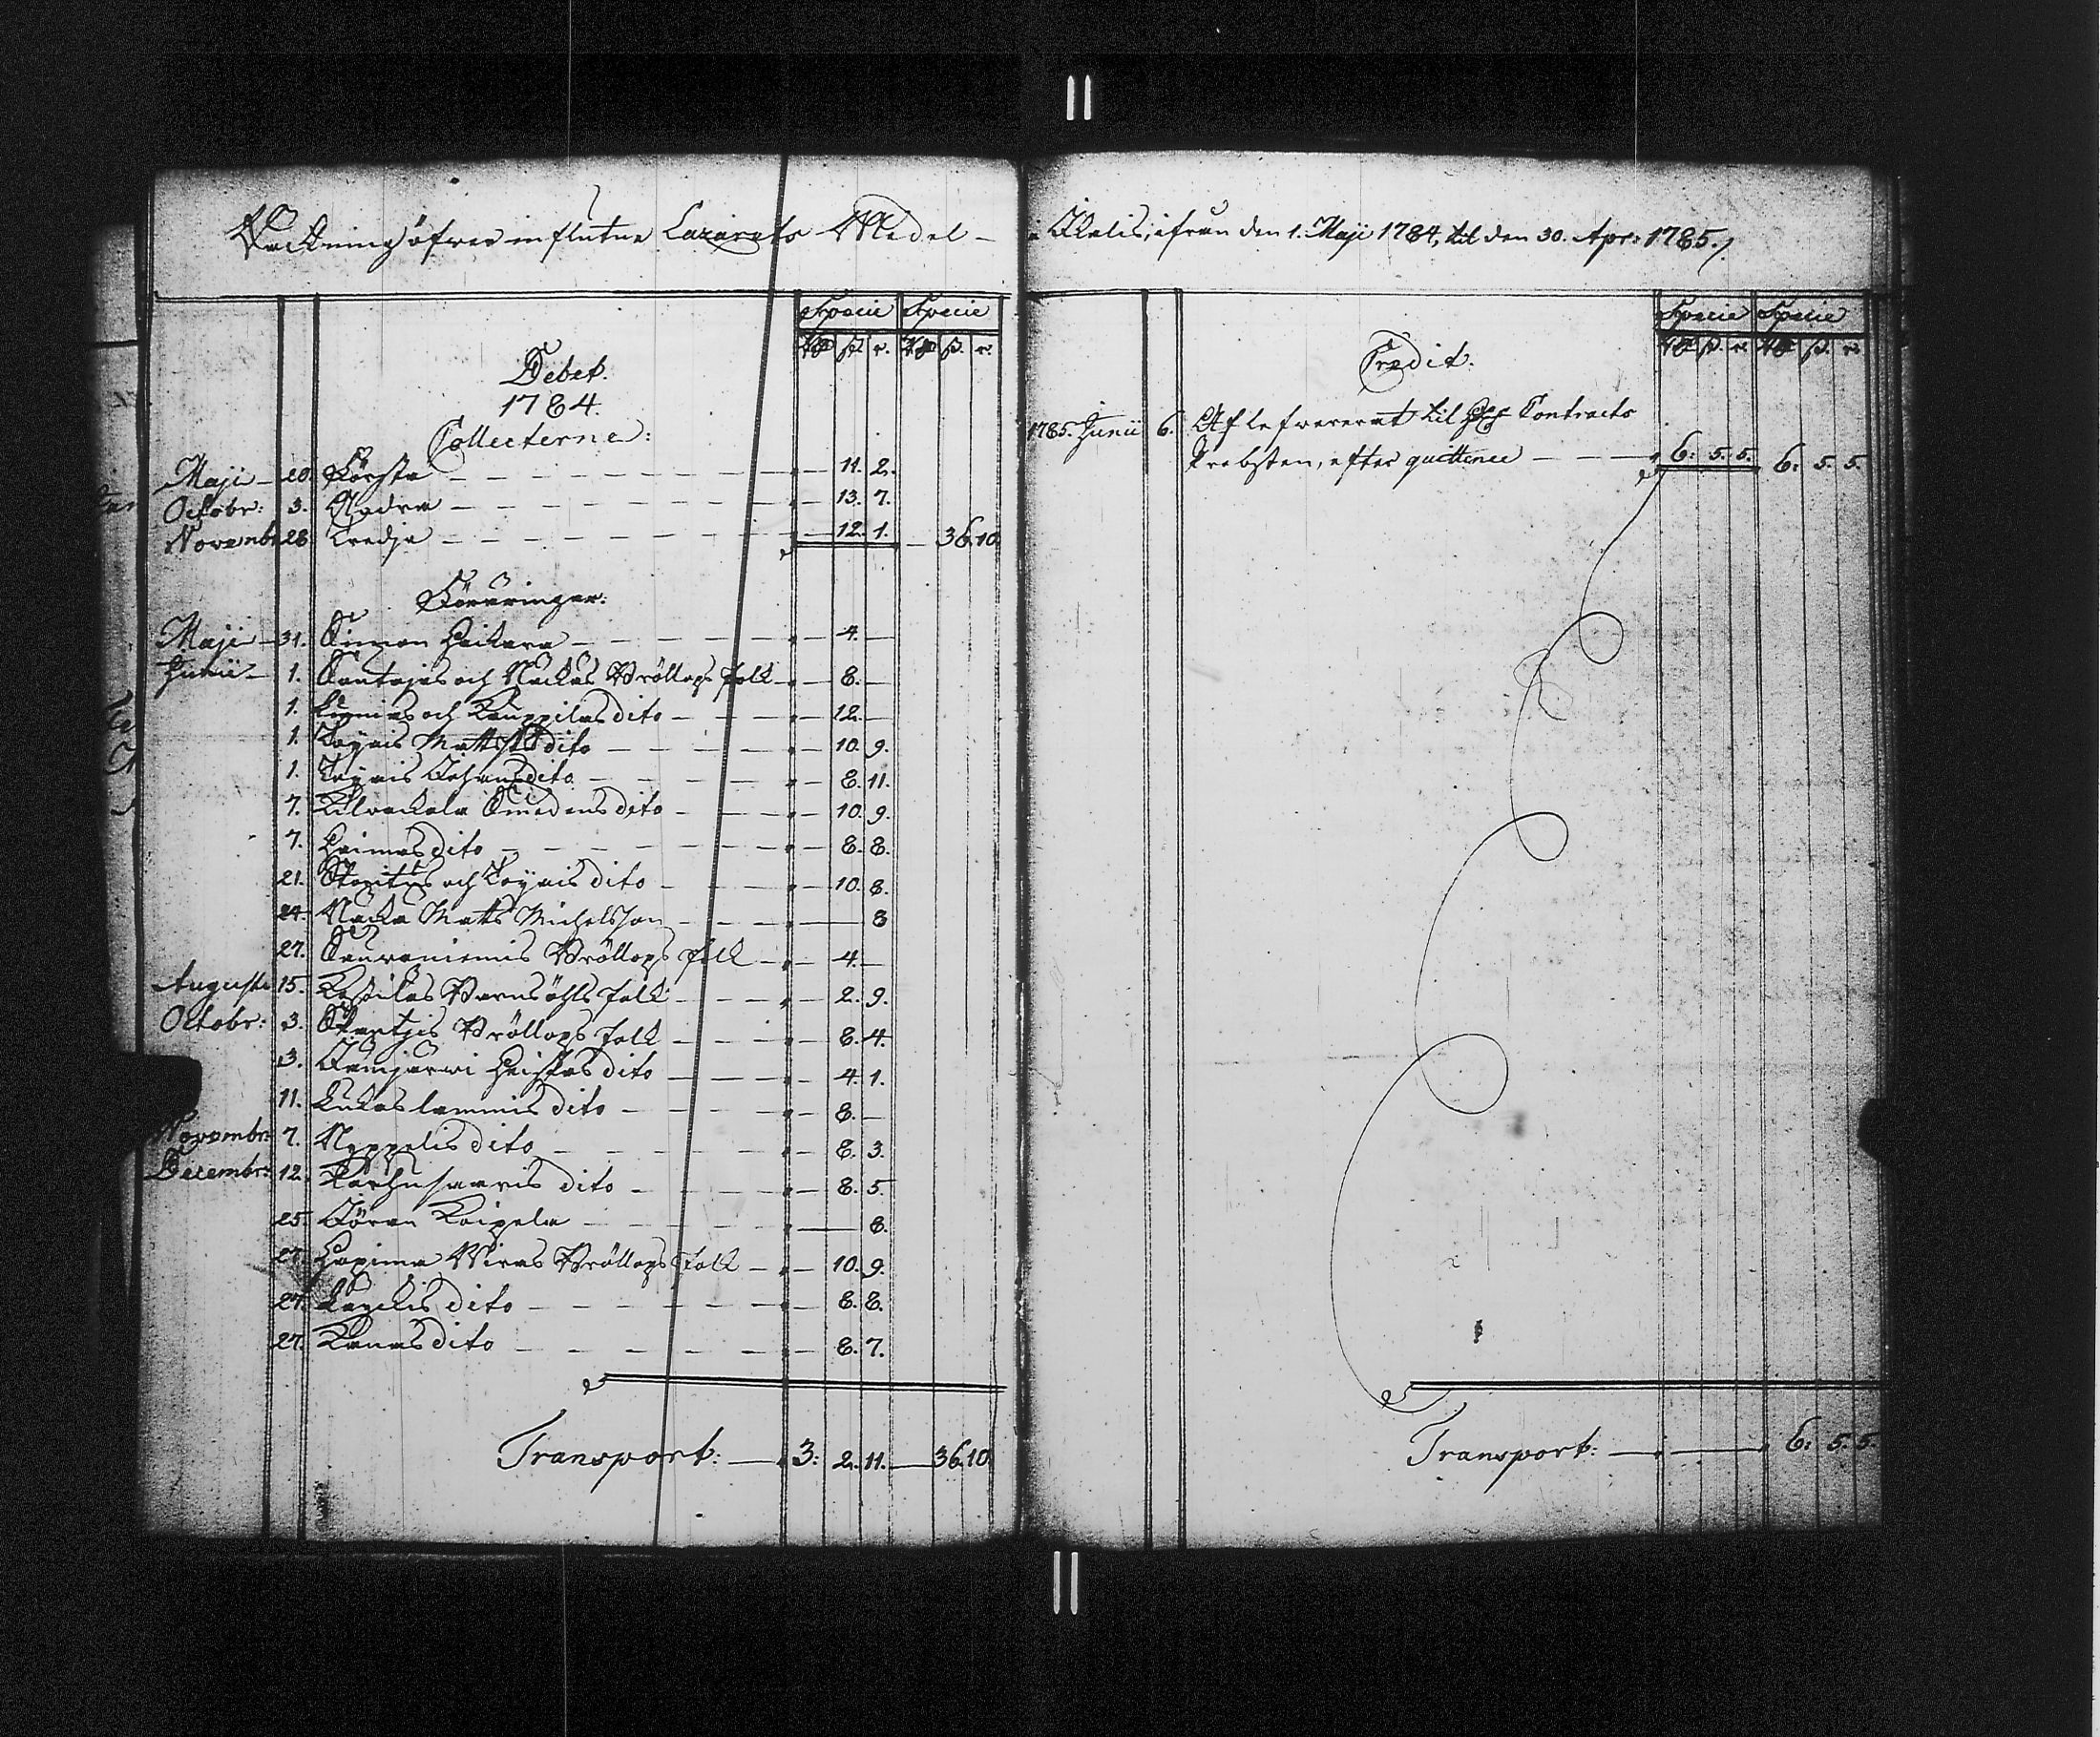 Räckning öfver influtne Lazarets Medel
i Ikalis, ifrån den 1. Maji 1784, til den 30. Apr: 1785.
Specie Specie
ß. r. ß. r.
Debet.
1784.
Collecterne:
Maji 20. Första 11. 2.
Octobr: 3. Andra 13. 7.
Novembr 28. Tredje 12. 1. 36.10.
Föräringar:
Maji 31. Simon Heikara 4.
Junii 1. och Bröllops folk 8.
1. och Kauppilas dito 12.
1. Matts dito 10. 9.
1. Johans dito 8. 11.
7. Kilvakala Smedens dito 10. 9.
7. Heimas dito 8. 8.
21. och dito 10. 8.
24. Matts Michelsson 8
27. Sauraniemis Bröllops folk 4.
Augusti 15. Barnsöhls folk 2. 9.
Octobr: 3. Bröllops folk 8. 4.
3. dito 4. 1.
11. dito 8.
Novembr: 7. Nyppelis dito 8. 3.
Decembr: 12. Karhusaaris dito 8. 5.
25. Jöran 8.
27. Bröllops folk 10. 9.
27. dito 8. 8.
27. dito 8. 7.
Transport: 3: 2. 11. 36.10.
Specie Specie
ß. r. ß. r.
Credit.
1785. Junii 6. Aflefvererat til Contracts
Probsten, efter quittence 6: 5. 5. 6: 5. 5.
Transport: 6: 5. 5.